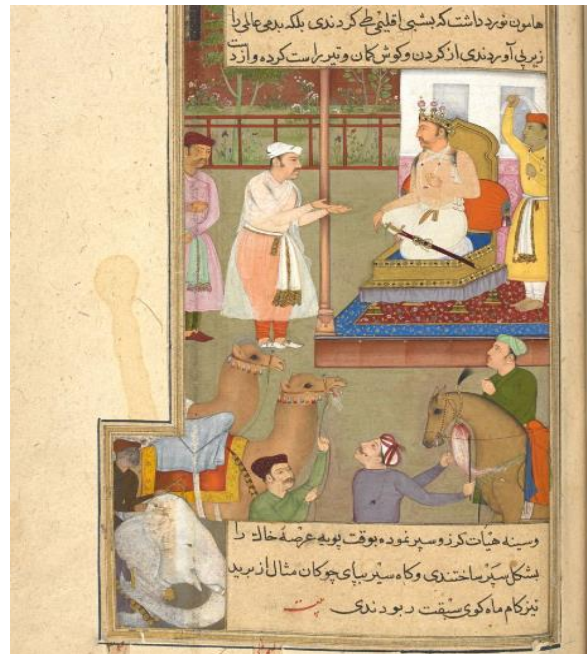 هامون نورد داشت که بشبی اقلیمی طی کردندی بلکه بدمی عالمی را
زیر پی آوردندی از کردن وکوش کمان وتیر راست کرده واز دست
وسینه هیأت کرز وسپر نموده بوقت پویه عرصهٔ خاک را
بشکل سپر ساختندی وکاه سیر بپای چوکان مثال از برید
تیز کام ماه کوی سبقت ربودندی